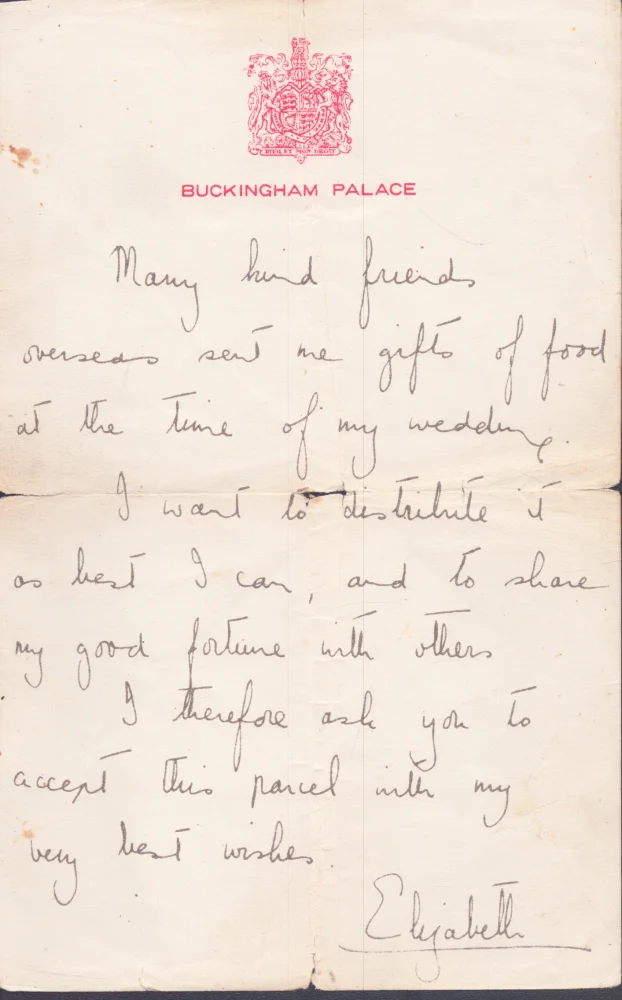 DIEU ET MON DROIT
BUCKINGHAM PALACE
Many kind friends
overseas sent me gifts of food
at the time of my wedding.
I want to distribute it
as best I can, and to share
my good fortune with others
I therefore ask you to
accept this parcel with my
very best wishes.
Elizabeth